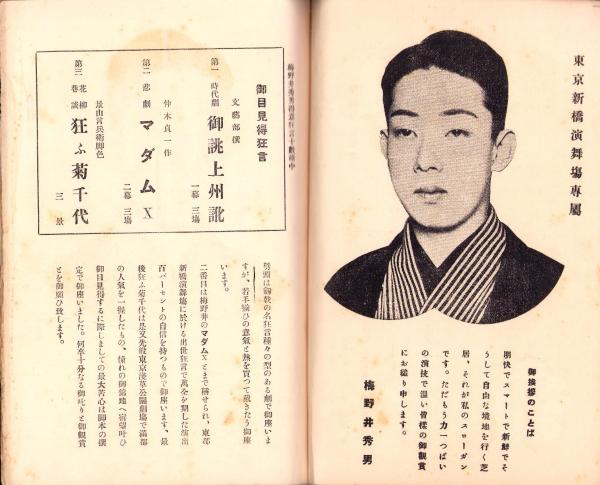 東京新橋演舞場專屬
御挨拶のことば
明快でスマートで新鮮でそ
うして自由な境地を行く芝
居、それが私のスローガン
です。たゞもう力一つぱい
の演技で温い皆様の御觀賞
にお縋り申します。
梅野井秀男
梅野井秀男得意狂言十數種中
御目見得狂言
文藝部撰
第一 時代劇 御誂上州訛
一幕三場
仲木貞一作
第二 悲劇 マダムX
二幕三場
景山言兵衛脚色
第三 花柳巷談 狂ふ菊千代
三景
劈頭は劍戟の名狂言種々の型のある劇で御座いま
すが、若手揃ひの意氣と熱を買つて戴きたう御座
います。
二番目は梅野井のマダムXとまで稱せられ、東都
新橋演舞場に於ける出世狂言で萬全を期した演出
百パーセントの自信を持つもので御座います、最
後狂ふ菊千代は是又先般東京淺草公園劇場で滿都
の人氣を一握したもの、憧れの御當地へ宿望叶ひ
御目見得するに際しましての最大苦心は脚本の撰
定で御座いました。何卒十分なる御叱りと御觀賞
とを御願ひ致します。